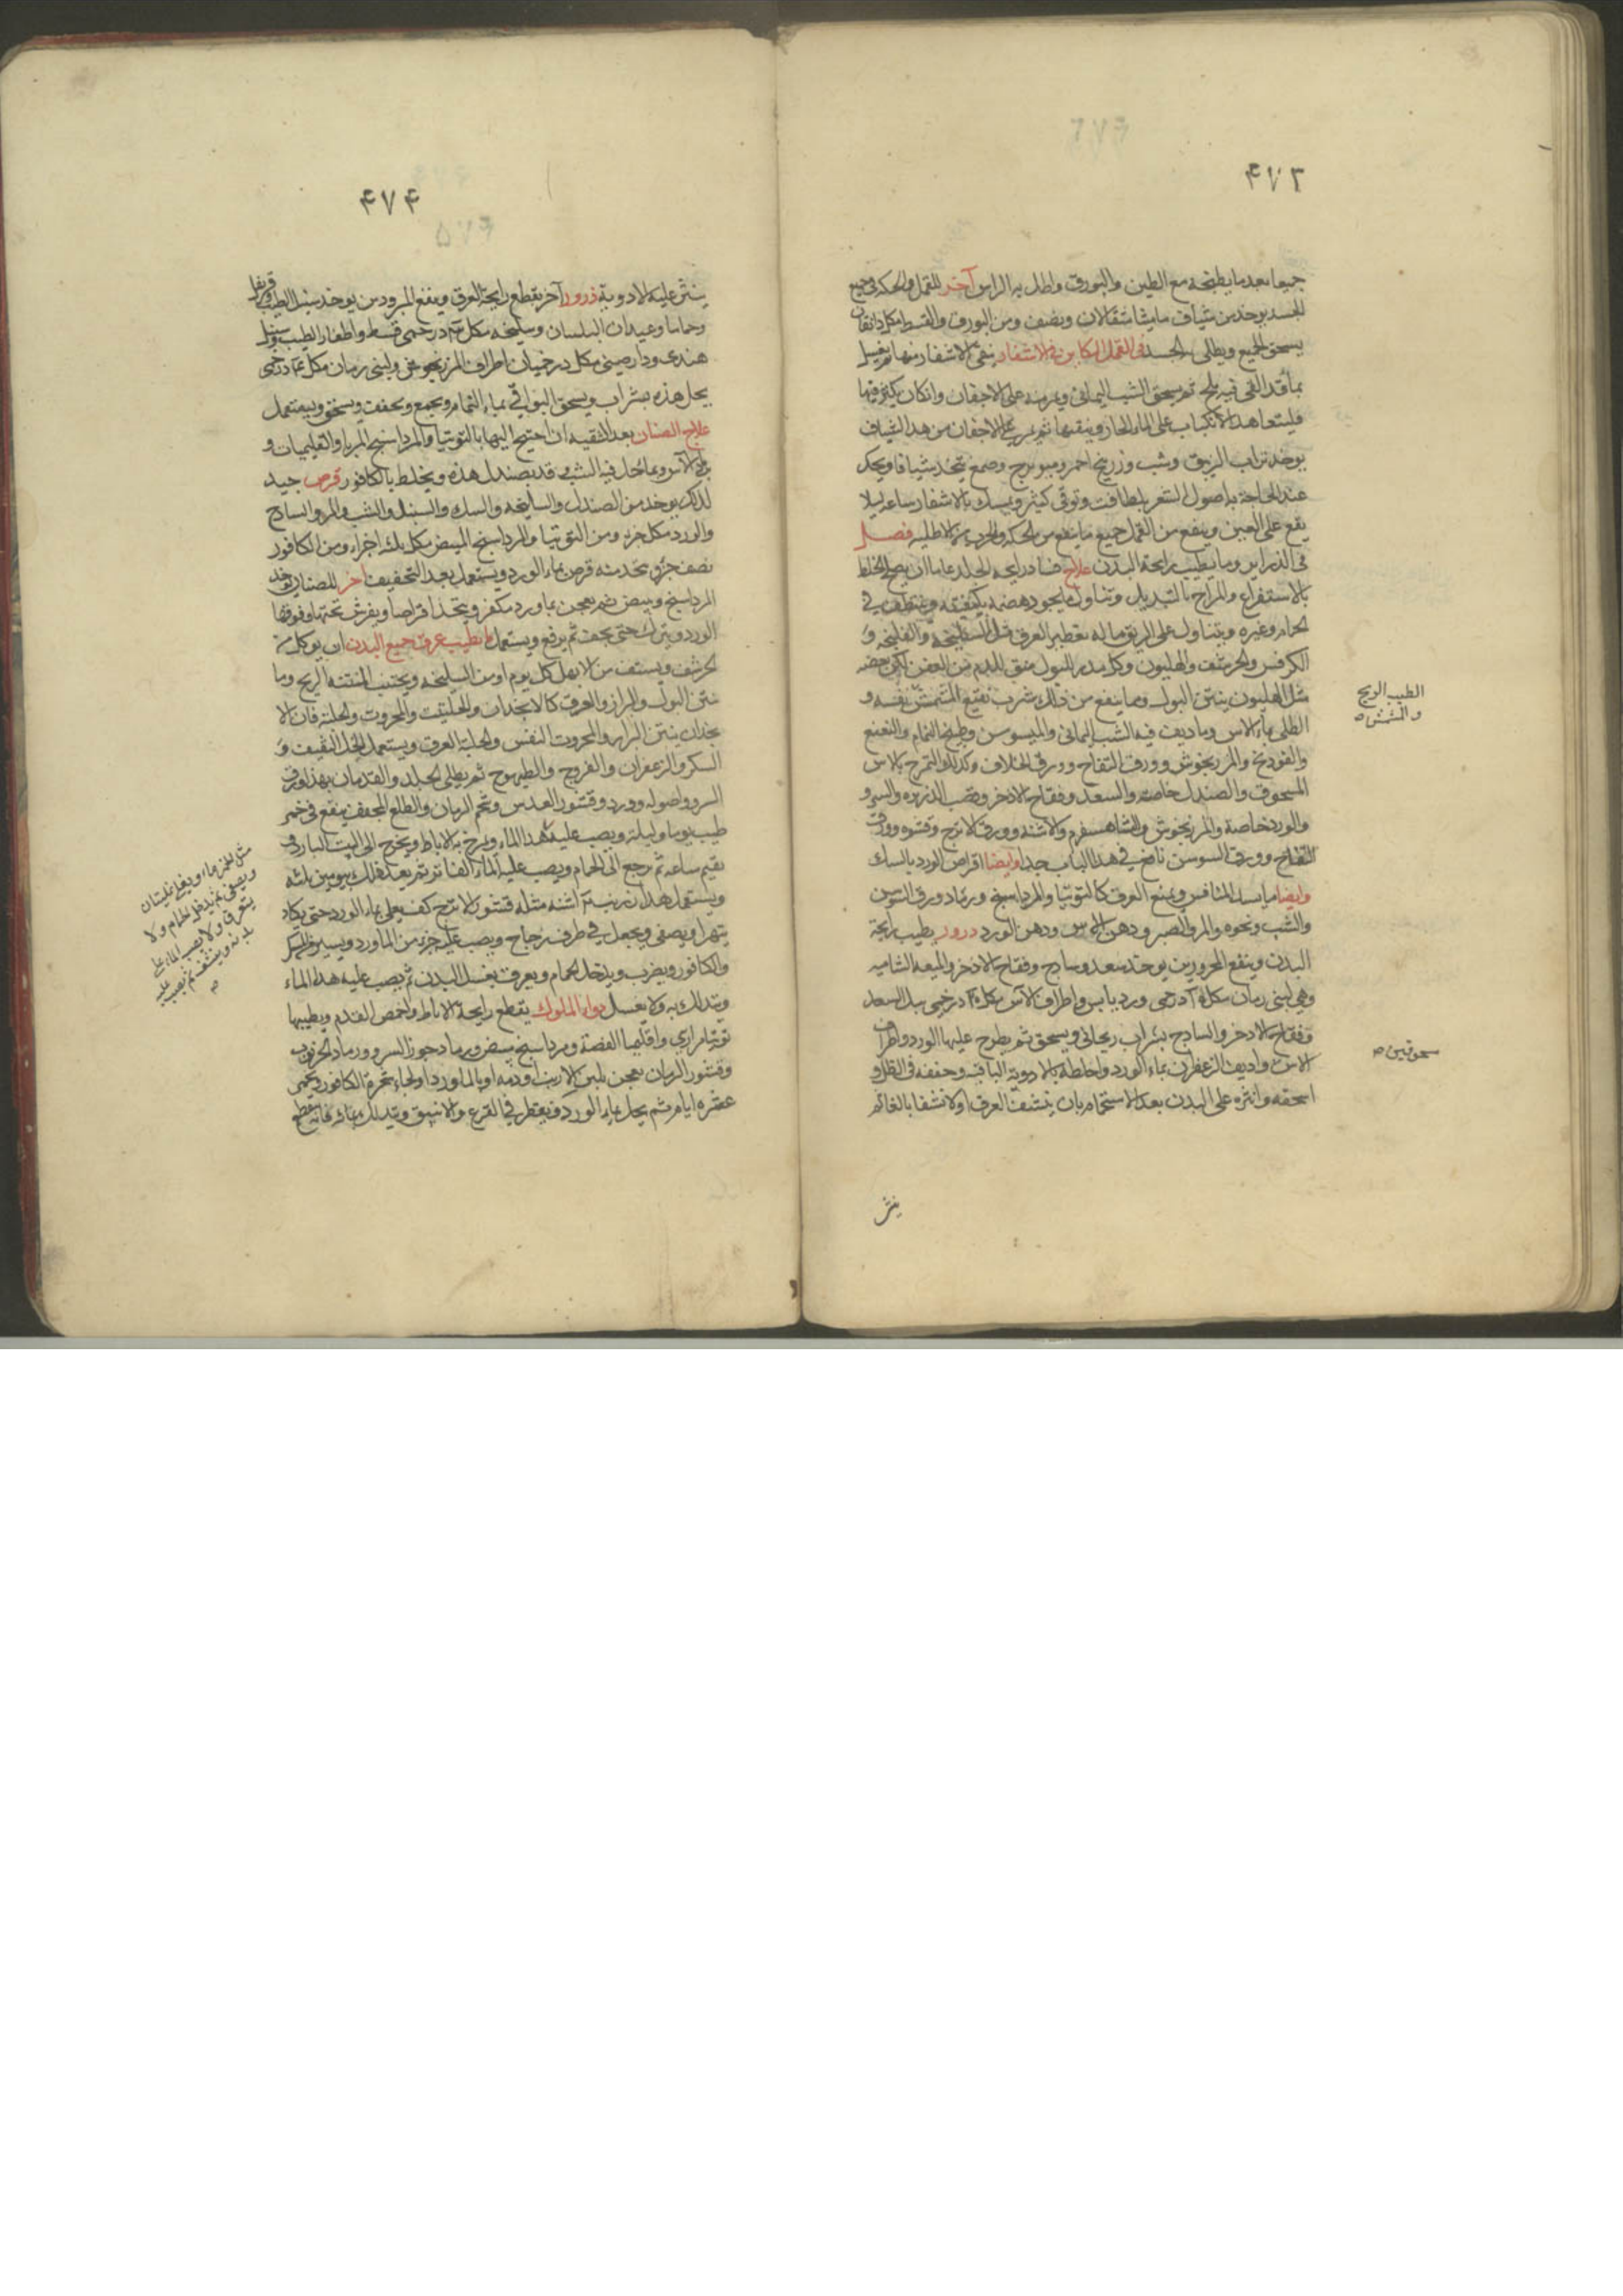 ۴۷۳
جميعا بعد ما يطبخه مع الطين والبورق واطل به الراس آخر للقمل والحكه فى جميع
الجسد يوخذ من شياف ماميثا مثقالان ونصف ومن البورق والقسط مكل دانقان
يسحق الجميع ويطلى الجسد فى القمل الكاين فى الاشفار ينقى الاشفار منها ثم يغسل
بما قد القى فيه ملح ثم يسحق الشب اليمانى ويمر منه على الاجفان وان كان يكثر فيها
فليتعاهد الانكباب على الماء الحار وينقيها ثم يمر على الاجفان من هذا الشياف
يوخذ تراب الزيبق وشب وزرنيخ احمر وميويزج وصمغ يتخذ شيافا ويحك
عند الحاجة باصول الشعر بلطافت وتوقى كثير ويمسك بالاشفار ساعه ليلا
يقع على العين وينفع من القمل جميع ما ينفع من الحكه والجرب من الاطليه فصل
فى الذراير وما يطيب رايحة البدن علاج فساد رايحه الجلد عاما ان يصلح الخلط
بالاستفراغ والمزاج بالتبديل وتناول ما يجود هضمه بكيفيته ويتنظف فى
الحمام وغيره ويتناول على الريق ما له تعطير العرق مثل السليخه والفلنجه و
الكرفس والحرشف والهليون وكل مدر للبول منق للدم من العفن لكن بعضه
مثل الهليون ينتن البول ومما ينفع من ذلك شرب نقيع المشمش نفسه و
الطلى بماء الاس وما ديف فيه الشب اليمانى والميسوسن وطبيخ النمام والنعنع
والفودنج والمرزنجوش وورق التفاح وورق الخلاف وكذلك التمرخ بالاس
المسحوق والصندل خاصة والسعد وفقاح الاذخر وقصب الذريره والسرو
والورد خاصة والمرزنجوش والشاهسفرم والاشنه وورق الاترج وقشره وورق
التفاح وورق السوسن نافع فى هذا الباب جدا وايضا اقراص الورد بالسك
وايضا ما يسد المنافس ويمنع العرق كالتوتيا والمرداسنج ورماد ورق السوسن
والشب ونحوه والمر والصبر ودهن الاس ودهن الورد درور يطيب رايحة
البدن وينفع المحرورين يوخذ سعد وسادج وفقاح الاذخر والميعه الشاميه
وهى لبنى رمان مكل آ درخمى ورد يابس واطراف الآس مكل درخمى يبل السعد
وفقاح الاذخر والسادج بشراب ريحانى ويسحق ثم يطرح عليها الورد واطراف
الاس واديف الزعفران بماء الورد واخلطه بالادوية الباقيه وجففه فى الظل و
اسحقه وانثره على البدن بعد الاستحمام بان ينشف العرق اولا نشفا بالغا ثم
ينثر
الطيب الريح
والمشمش صح
مسحوقين صح
۴۷۴
ينثر عليه الادوية ذرور آخر يقطع رايحة العرق وينفع المبرودين يوخذ سنبل الطيب وقرنفل
وحماما وعيدان البلسان وسليخه مكل درخمى قسط واظفار الطيب وسنبل
هندى ودارصينى مكل درخميان اطراف المرزنجوش ولبنى رمان مكل درخمى
يحل هذه بشراب ويسحق البواقى بماء النمام ويجمع ويجفف ويسحق ويستعمل
علاج الصنان بعد التنقيه ان احتيج اليها بالتوتيا والمرداسنج المربا والقليميات و
برماد الآس وبما حل فيه الشب قد يصندل هذه ويخلط بالكافور قرص جيد
لذلك يوخذ من الصندل والسليخه والسك والسنبل والشب والمر والسادج
والورد مكل جزء ومن التوتيا والمرداسنج المبيض مكل ثلثه اجزاء ومن الكافور
نصف جزؤ يتخذ منه قرص بماء الورد ويستعمل بعد التجفيف اخر للصنان يوخذ
المرداسنج ويبيض ثم يعجن بماورد مكفر ويتخذ اقراصا ويفرش تحتها وفوقها
الورد ويترك حتى يجف ثم يرفع ويستعمل ما يطيب عرق جميع البدن ان يوكل من
الحرشف ويستف من الابهل كل يوم او من السليخه ويجتنب المنتنه الريح وما
ينتن البول والبراز والعرق كالانجدان والحلتيت والمحروت والحلبه فان الا
نجدان ينتن البراز والمحروت النفس والحلبه العرق ويستعمل الخل الثقيف و
السكر والزعفران والفروج والطيهوج ثم يطلى الجلد والقدمان بهذا ورق
السرو واصوله وورد وقشور العدس وشحم الرمان والطلع المجفف ينقع فى خمر
طيب يوما وليلة ويصب عليه هذا الماء ويمرخ به الاباط ويخرج الى البيت البارد
يقيم ساعه ثم يرجع الى الحمام ويصب عليه الماء الفاتر ثم يعيد ذلك يومين ثلثه
ويستعمل هذا اشنه مثله قشور الاترج كف يغلى بماء الورد حتى يكاد
يتهرا ويصفى ويجعل فى ظرف زجاج ويصب عليه جزء من الماورد ويسير المسك
والكافور ويضرب ويدخل الحمام ويعرق يغسل البدن ثم يصب عليه هذا الماء
ويتدلك به ولا يغسل دواء الملوك يقطع رايحة الاباط واخمص القدم ويطيبها
توتيا مرازى واقليميا الفضة ومرداسنج مبيض ورماد جوز السرو ورماد الخرنوب
وقشور الرمان يعجن بلبن الارنب او دمه او بالماورد اولجاء بتخرم الكافور ويخمر
عشره ايام ثم يحل بماء الورد ويقطر فى القرع والانبيق ويتدلك بمائه فانه يقطع
مثل الخمر ماء ويغلى غليتان
ويصفى ثم يدخل الحمام ولا
يتعرق ولا يصب الماء على
بدنه وينشفه ثم يصب عليه
صح